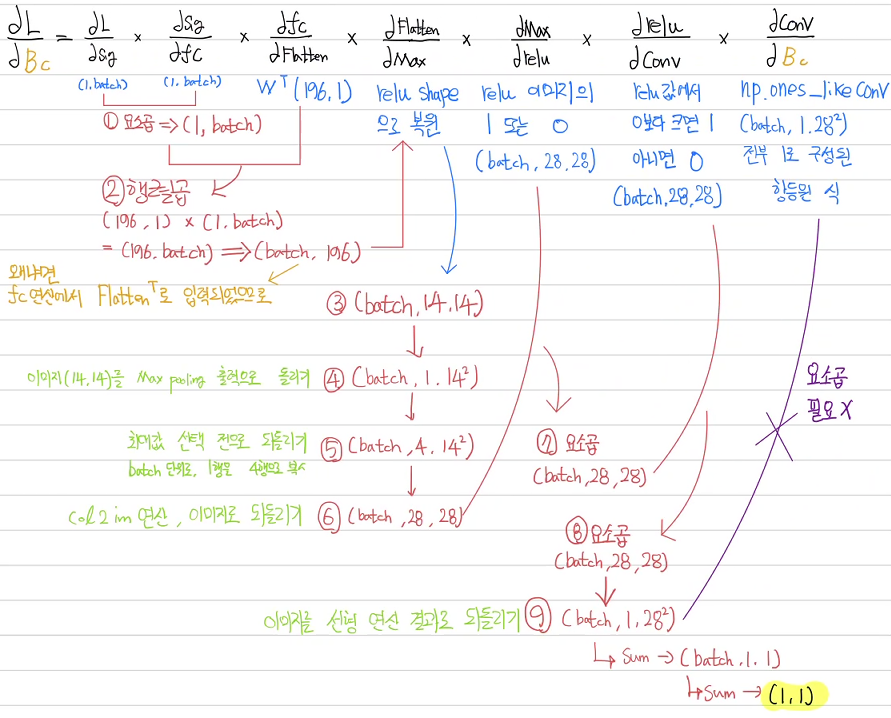 ∂L/∂Bc = ∂L/∂sig × ∂sig/∂fc × ∂fc/∂Flatten × ∂Flatten/∂Max × ∂Max/∂relu × ∂relu/∂Conv × ∂Conv/∂Bc
(1.batch) (1.batch) Wᵀ(196,1) relu shape 으로 복원
relu 이미지의 1 또는 0 (batch, 28, 28)
relu값에서 0보다 크면 1 아니면 0 (batch, 28, 28)
np.ones_like Conv (batch, 1.28²) 전부 1로 구성된 항등원 식
① 요소곱 => (1, batch)
② 행렬곱
(196, 1) × (1. batch)
= (196. batch) => (batch, 196)
왜냐면
fc 연산에서 Flattenᵀ로 입력되었으므로
③ (batch, 14, 14)
이미지(14,14)를 Max pooling 출력으로 돌리기 ④ (batch, 1. 14²)
최대값 선택 전으로 되돌리기
batch 단위로, 1행을 4행으로 복사
⑤ (batch, 4. 14²)
Col2im 연산, 이미지로 되돌리기 ⑥ (batch, 28, 28)
⑦ 요소곱
(batch, 28, 28)
요소곱
필요 X
⑧ 요소곱
(batch, 28, 28)
이미지를 선형 연산 결과로 되돌리기 ⑨ (batch, 1, 28²)
sum → (batch, 1. 1)
sum → (1, 1)